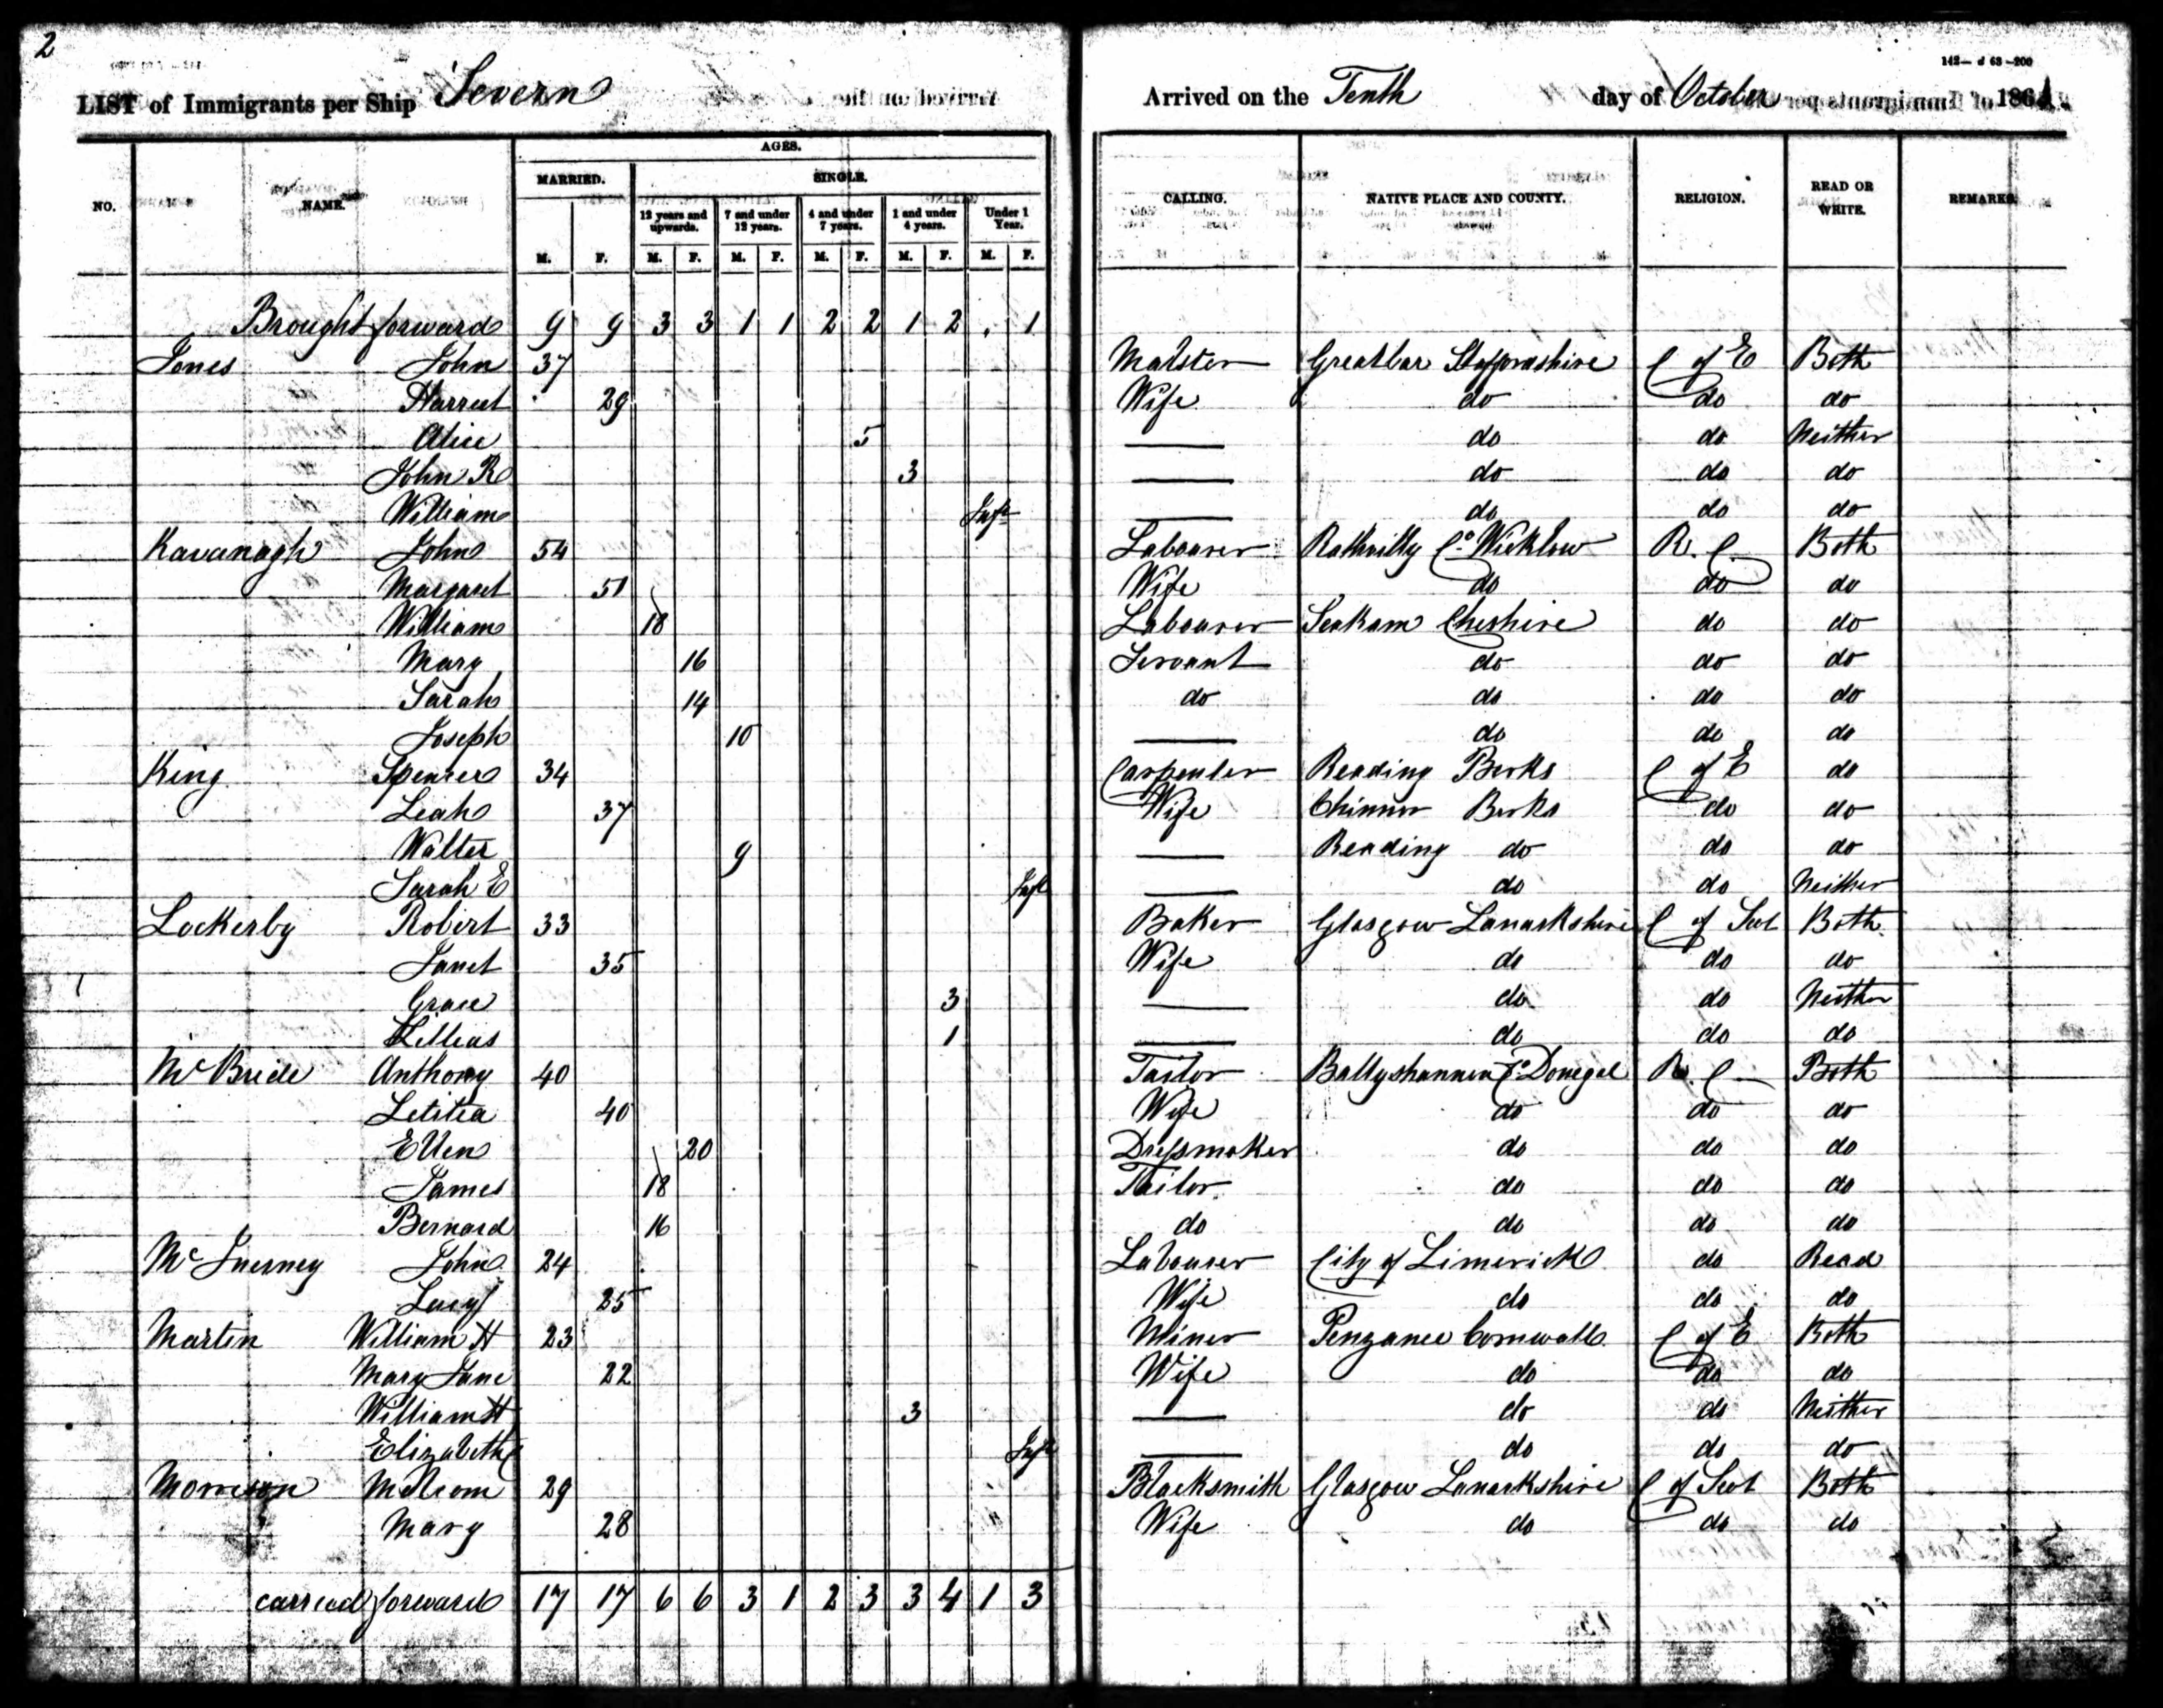 2
142— d 63—200
LIST of Immigrants per Ship Severn Arrived on the Tenth day of October 1864
NO. NAME. AGES. CALLING. NATIVE PLACE AND COUNTY. RELIGION. READ OR WRITE. REMARKS.
MARRIED. SINGLE.
12 years and upwards. 7 and under 12 years. 4 and under 7 years. 1 and under 4 years. Under 1 Year.
M. F. M. F. M. F. M. F. M. F. M. F.
Brought forward 9 9 3 3 1 1 2 2 1 2 . 1
Jones John 37 Malster Greatbar Staffordshire C of E Both
Harriet 29 Wife do do do
Alice 5 — do do Neither
John R 3 — do do do
William Inft — do do do
Kavanagh John 54 Labourer Rathvilly Co. Wicklow R. C. Both
Margaret 51 Wife do do do
William 18 Labourer Seakam Cheshire do do
Mary 16 Servant do do do
Sarah 14 do do do do
Joseph 10 — do do do
King Spencer 34 Carpenter Reading Berks C of E do
Leah 37 Wife Chinnor Berks do do
Walter 9 — Reading do do do
Sarah E Inft — do do Neither
Lockerby Robert 33 Baker Glasgow Lanarkshire C of Scot Both
Janet 35 Wife do do do
Grace 3 — do do Neither
Lillias 1 — do do do
McBride Anthony 40 Tailor Ballyshannon Co Donegal R. C. Both
Letitia 40 Wife do do do
Ellen 20 Dressmaker do do do
James 18 Tailor do do do
Bernard 16 do do do do
McInerney John 24 Labourer City of Limerick do Read
Lucy 25 Wife do do do
Martin William H 23 Miner Penzance Cornwall C of E Both
Mary Jane 22 Wife do do do
William H 3 — do do Neither
Elizabeth Inft — do do do
Morrison Malcom 29 Blacksmith Glasgow Lanarkshire C of Scot Both
Mary 28 Wife do do do
carried forward 17 17 6 6 3 1 2 3 3 4 1 3